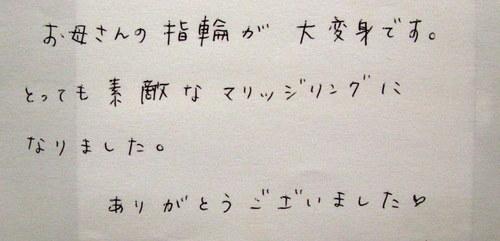 お母さんの指輪が大変身です。
とっても素敵なマリッジリングに
なりました。
ありがとうございました♡